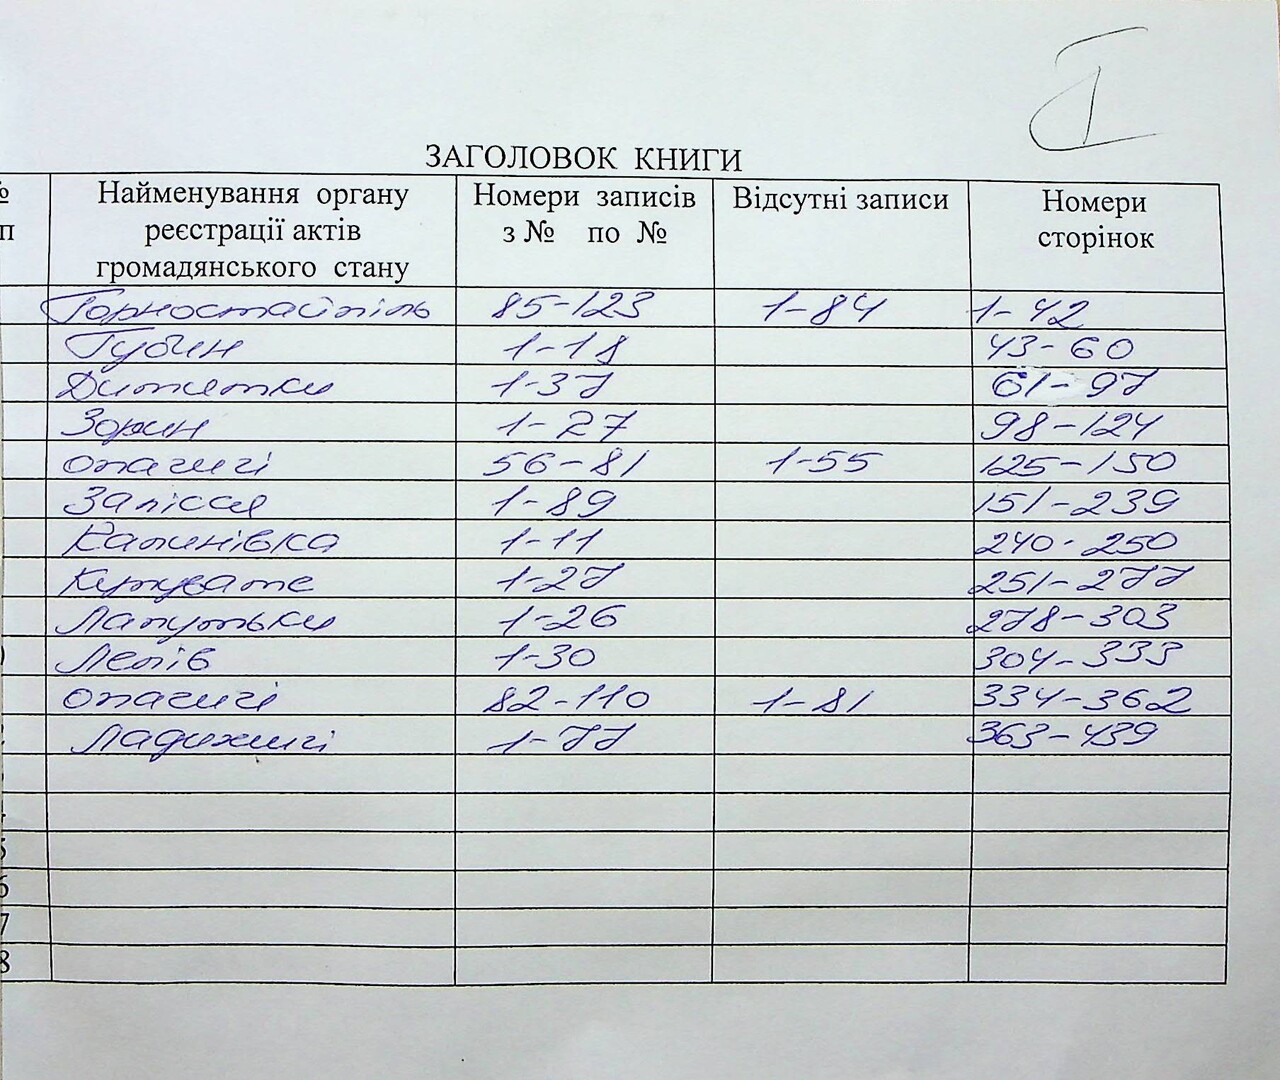 I
ЗАГОЛОВОК КНИГИ
№ Найменування органу Номери записів Відсутні записи Номери
п реєстрації актів з № по № сторінок
громадянського стану
Горностайпіль 85-123 1-84 1-42
Губин 1-18 43-60
Дитятки 1-37 61-97
Зорин 1-27 98-124
опачичі 56-81 1-55 125-150
Залісся 1-89 151-239
Калинівка 1-11 240-250
Купувате 1-27 251-277
Лапутьки 1-26 278-303
Лелів 1-30 304-333
опачичі 82-110 1-81 334-362
Ладижичі 1-77 363-439
6
7
8